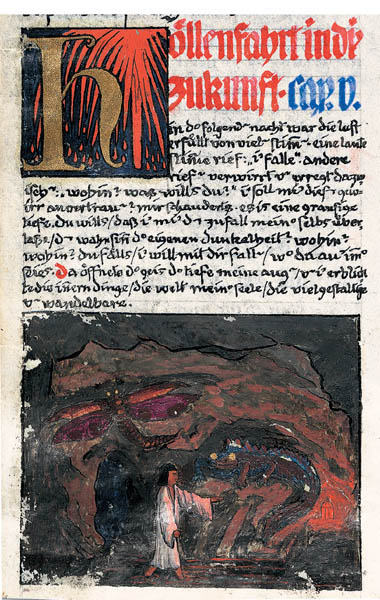 Höllenfahrt in di
Zukunft· cap. v.
In d folgend nacht war die luft
erfüllt von viel stim · eine laute
stime rief: „i falle“ · andere
rief verwirrt u erregt dazw
isch: „wohin? was wills du?“ i soll mi dies gew
irr anvertrau? mir schauderts. es ist eine grausige
tiefe. du wills / daß i mi d zufall mein selbs über
laß / d wahnsin d eigenen dunkelheit? wohin?
wohin? du falls / i will mit dir fall / wo da au im
seies· Da öffnete d geis d tiefe meine aug / u i erblick
te die innern dinge / die welt mein seele / die vielgestaltige
u wandelbare.